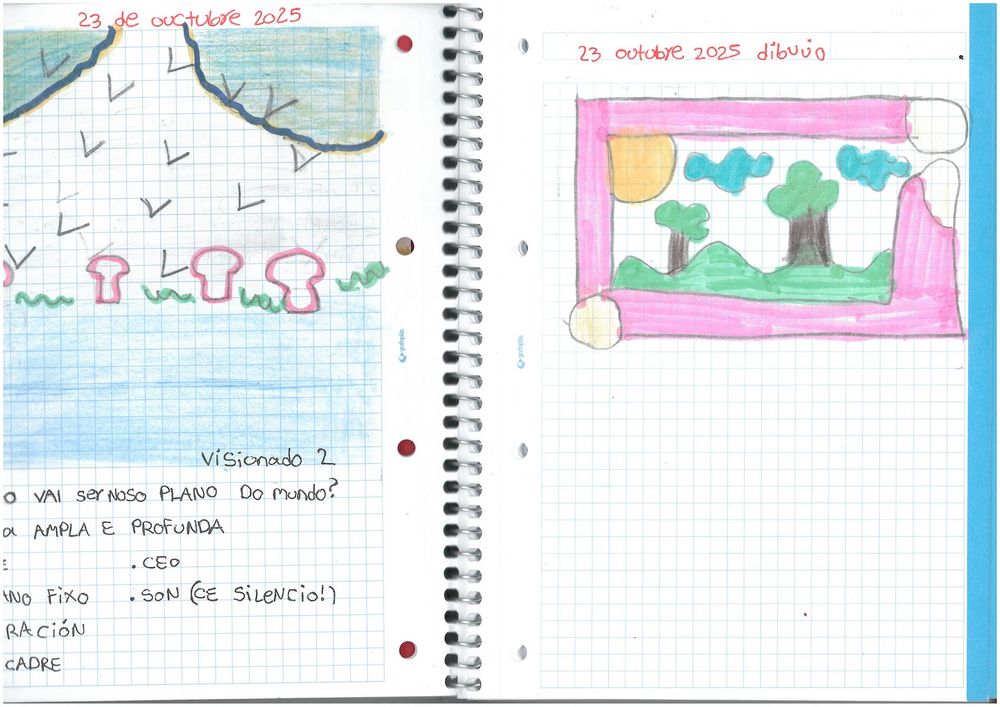 23 de ouctubre 2025
Visionado 2
O VAI ser NOSO PLANO DO mundo?
a AMPLA E PROFUNDA
E
. CEO
ANO FIXO
. SON (CE SILENCIO!)
RACIÓN
CADRE
grafoplás
23 outubre 2025 dibuio
grafoplás